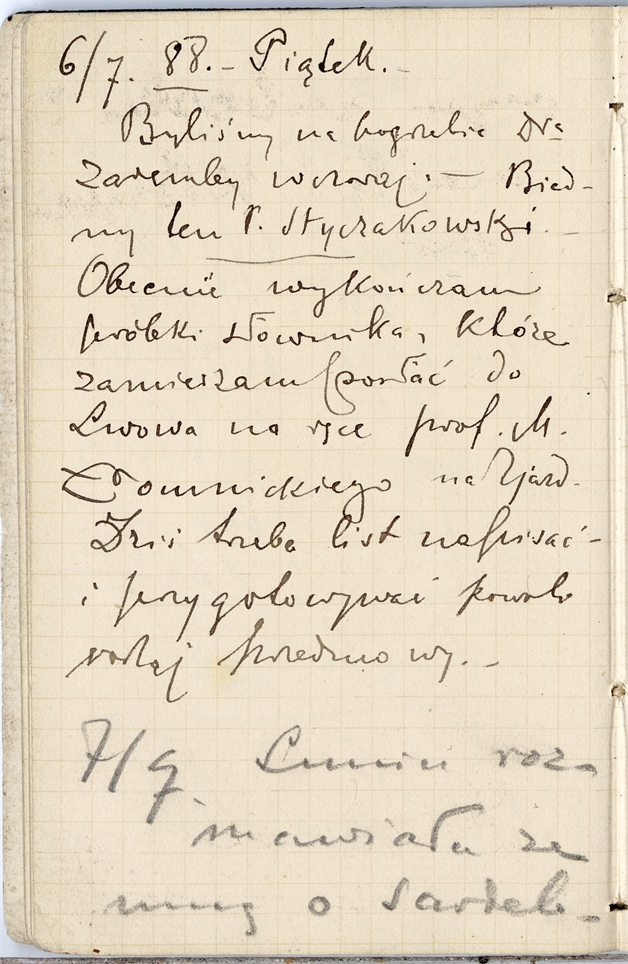 6/7. 88. – Piątek. –
Byliśmy na pogrzebie Dra
Zaremby wczoraj. — Bied-
ny ten P. Styczakowski. –
Obecnie wykończam
próbki słownika, które
zamierzam posłać do
Lwowa na ręce prof. M.
Łomnickiego na Zjazd.
Dziś trzeba list napisać –
i przygotowywać powoli
rodzaj przedmowy. –
7/9 roz-
mawiała ze
mną o